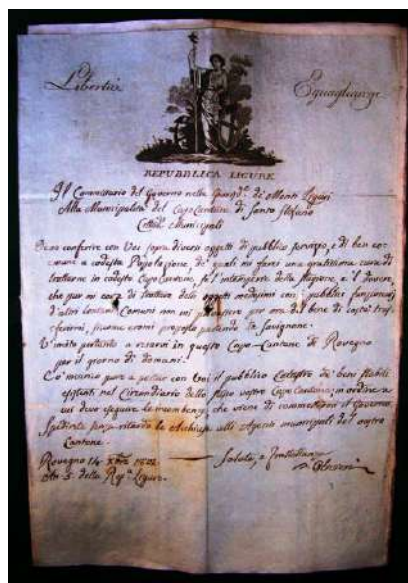 Libertà Eguaglianza
REPUBBLICA LIGURE
Il Commissario del Governo nella de Monti Liguri
Alla Municipalità del Capo Cantone di Santo Stefano
Cittad. Municipali
Devo conferire con Voi sopra diversi oggetti di pubblico servizio, e di ben
comune a codesta Popolazione, de' quali mi farei una gratissima cura di
trattarne in codesto Capo Cantone, se l'intemperie della stagione, e il dovere,
che pur mi corre di trattare delli oggetti medesimi con pubblici funzionarj
d'altri Comuni non mi per ora del bene di costà
per Savignone.
V'invito pertanto a in questo Capo-Cantone di Rovegno
per il giorno di domani.
pure a portar con Voi il pubblico Catastro de' beni stabili
esistenti nel Circondario dello stesso vostro Capo Cantone, in ordine a
cui devo eseguire le incombenze, che viene di commettermi il Governo.
Spedirete senza ritardo le alli Agenti municipali del vostro
Cantone.
Rovegno 14 Xbre 1802 Salute, e Fratellanza
An. 5. della Rep.a Ligure.